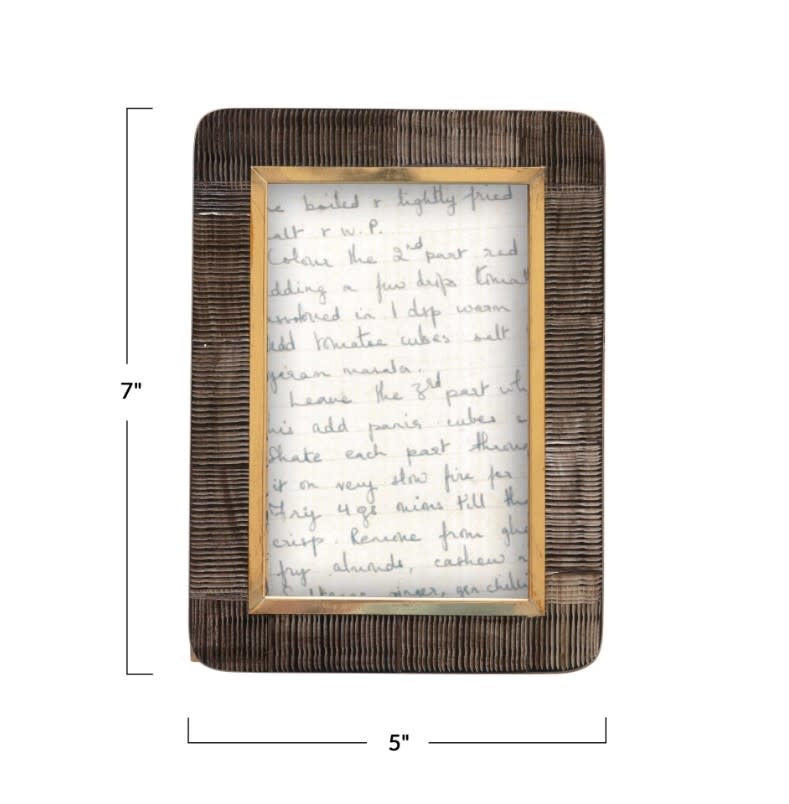 boiled & lightly fried
alt & W.P.
Colour the 2nd part red
dding a few drops tomat
ssolved in 1 dsp warm
dd tomatoe cubes salt
garam masala.
Leave the 3rd part wh
add panir cubes
Shake each part throu
it on very slow fire for
Fry 4 gs onions till th
crisp. Remove from ghe
fry almonds, cashew
ginger, grn chilli
7"
5"